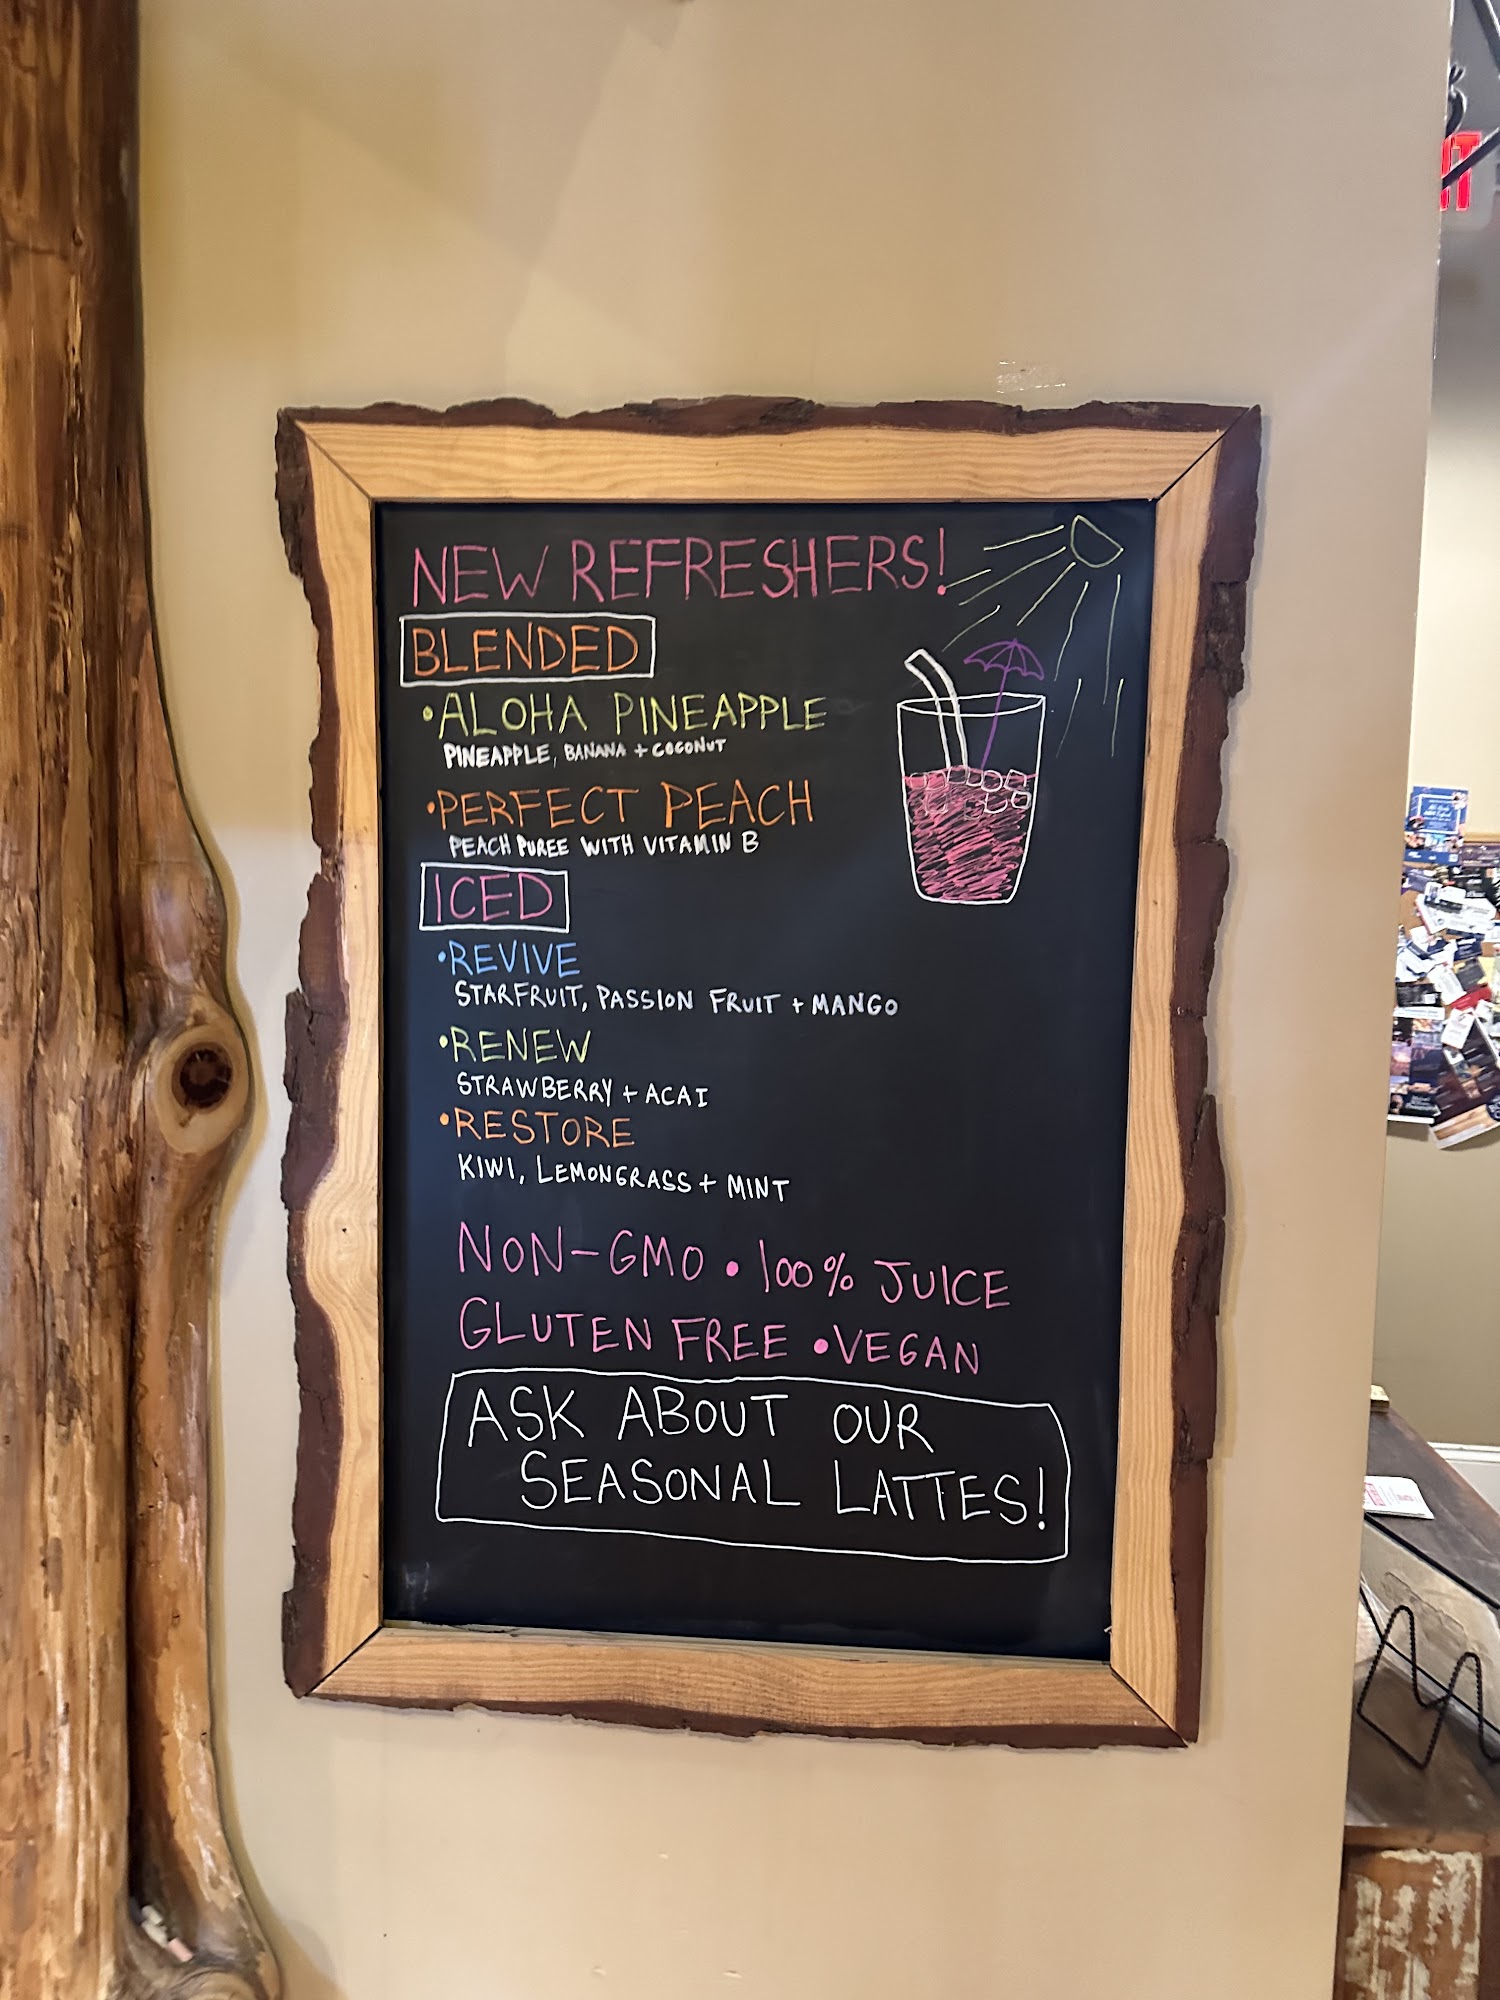 NEW REFRESHERS!
BLENDED
• ALOHA PINEAPPLE
PINEAPPLE, BANANA + COCONUT
• PERFECT PEACH
PEACH PUREE WITH VITAMIN B
ICED
• REVIVE
STARFRUIT, PASSION FRUIT + MANGO
• RENEW
STRAWBERRY + ACAI
• RESTORE
KIWI, LEMONGRASS + MINT
NON-GMO • 100% JUICE
GLUTEN FREE • VEGAN
ASK ABOUT OUR
SEASONAL LATTES!